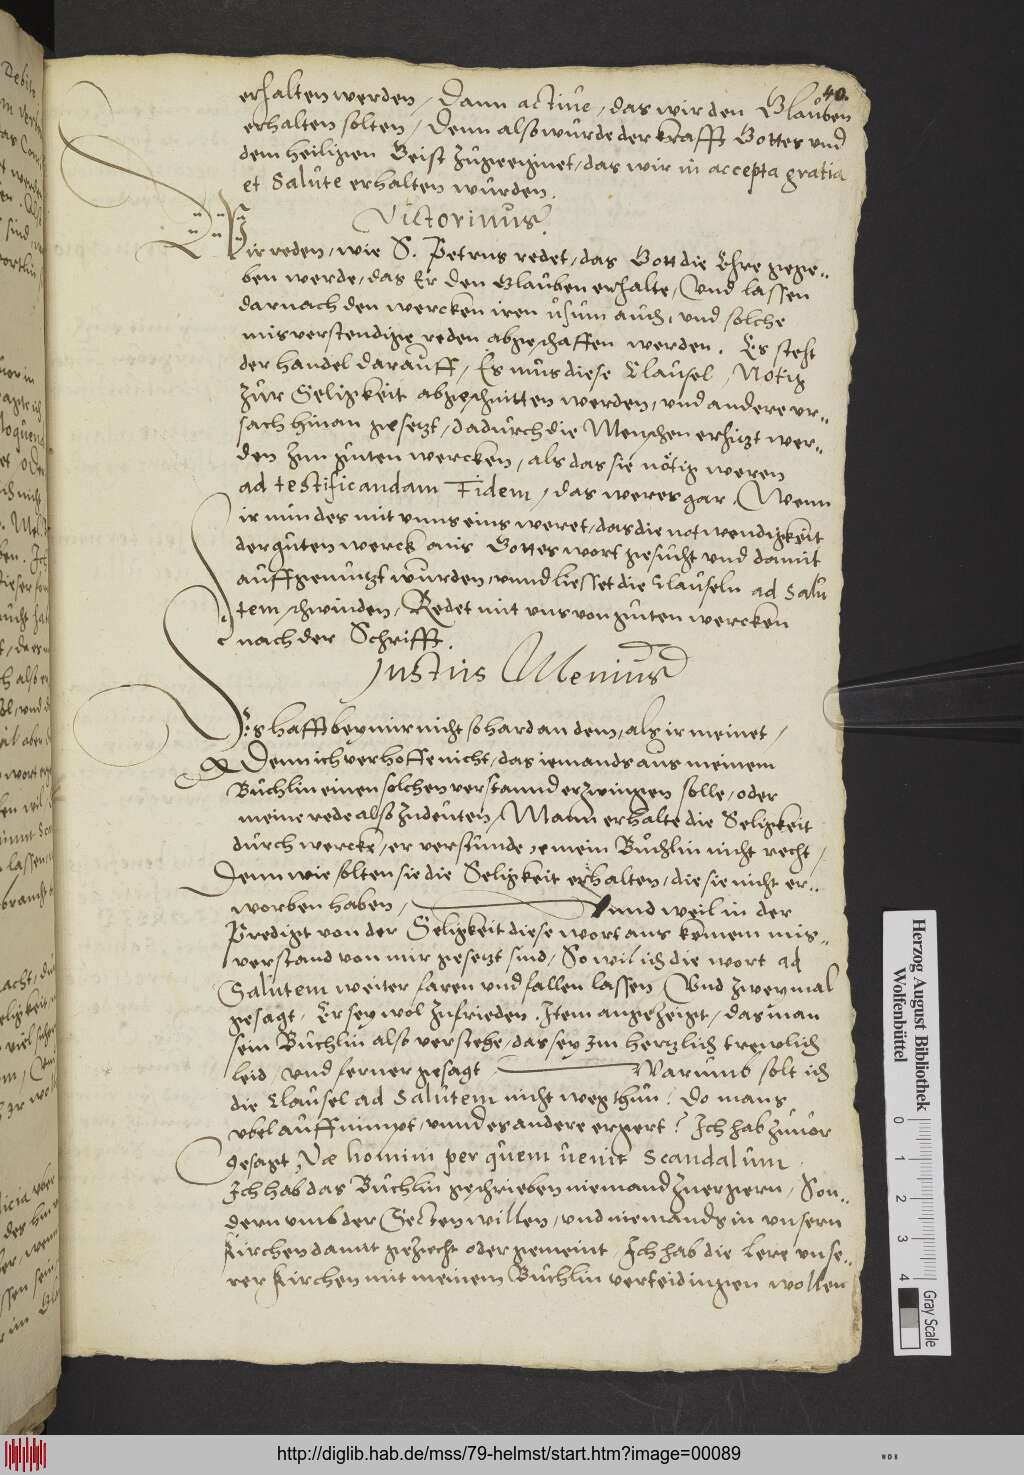 40.
erhalten werden, Dann active, das wir den Glauben
erhalten solten, Denn also würde der krafft Gottes und
dem heiligen Geist zugeeignet, das wir in accepta gratia
et Salute erhalten würden.
Victorinus.
Wir reden, wie S. Petrus redet, das Gott die Ehre gege=
ben werde, das Er den Glauben erhalte, Und lassen
darnach den wercken iren usum auch, und solche
misverstendige reden abgeschaffen werden. Es steht
der handel darauff, Es mus diese Clausel, Nötig
zur Seligkeit abgeschnitten werden, und andere ur=
sach hinan gesetzt, dadurch die Menschen erhitzt wer=
den zun guten wercken, als das sie nötig weren
ad testificandam Fidem, das were gar, Wenn
ir nun des mit unns eins weret, das die notwendigkeit
der guten werck aus Gottes wort gesucht und damit
auffgemutzt würden, unnd liesset die Clauseln ad Salu
tem schwinden, Redet mit uns von guten wercken
nach der Schrifft.
Justus Menius
Es hafft bey mir nicht so hard an dem, als ir meinet,
Denn ich verhoffe nicht, das iemands aus meinem
Büchlin einen solchen verstannd erzwingen solle, oder
meine rede also zudeuten, Mann erhalte die Seligkeit
durch wercke, er verstünde mein Büchlin nicht recht,
Denn wie solten sie die Seligkeit erhalten, die sie nicht er=
worben haben, Unnd weil in der
Predigt von der Seligkeit diese wort aus keinem mis=
verstand von mir gesetzt sind, So wil ich die wort ad
Salutem weiter faren und fallen lassen Und zweymal
gesagt, Er sey wol zufrieden. Item angezeigt, das man
sein Büchlin also verstehe, das sey im hertzlich trewlich
leid, und ferner gesagt, Warumb solt ich
die Clausel ad Salutem nicht weg thun? Do mans
ubel auffnimpt, unnd es andere ergert? Ich hab zuvor
gesagt, Væ homini per quem venit Scandalum.
Ich hab das Büchlin geschrieben niemand zu ergern, Son=
dern umb der Secten willen, und niemands in unsern
Kirchen damit gesucht oder gemeint, Ich hab die lere unse=
rer Kirchen mit meinem Büchlin verteidingen wollen
Herzog August Bibliothek
Wolfenbüttel
0 1 2 3 4
Gray Scale
http://diglib.hab.de/mss/79-helmst/start.htm?image=00089